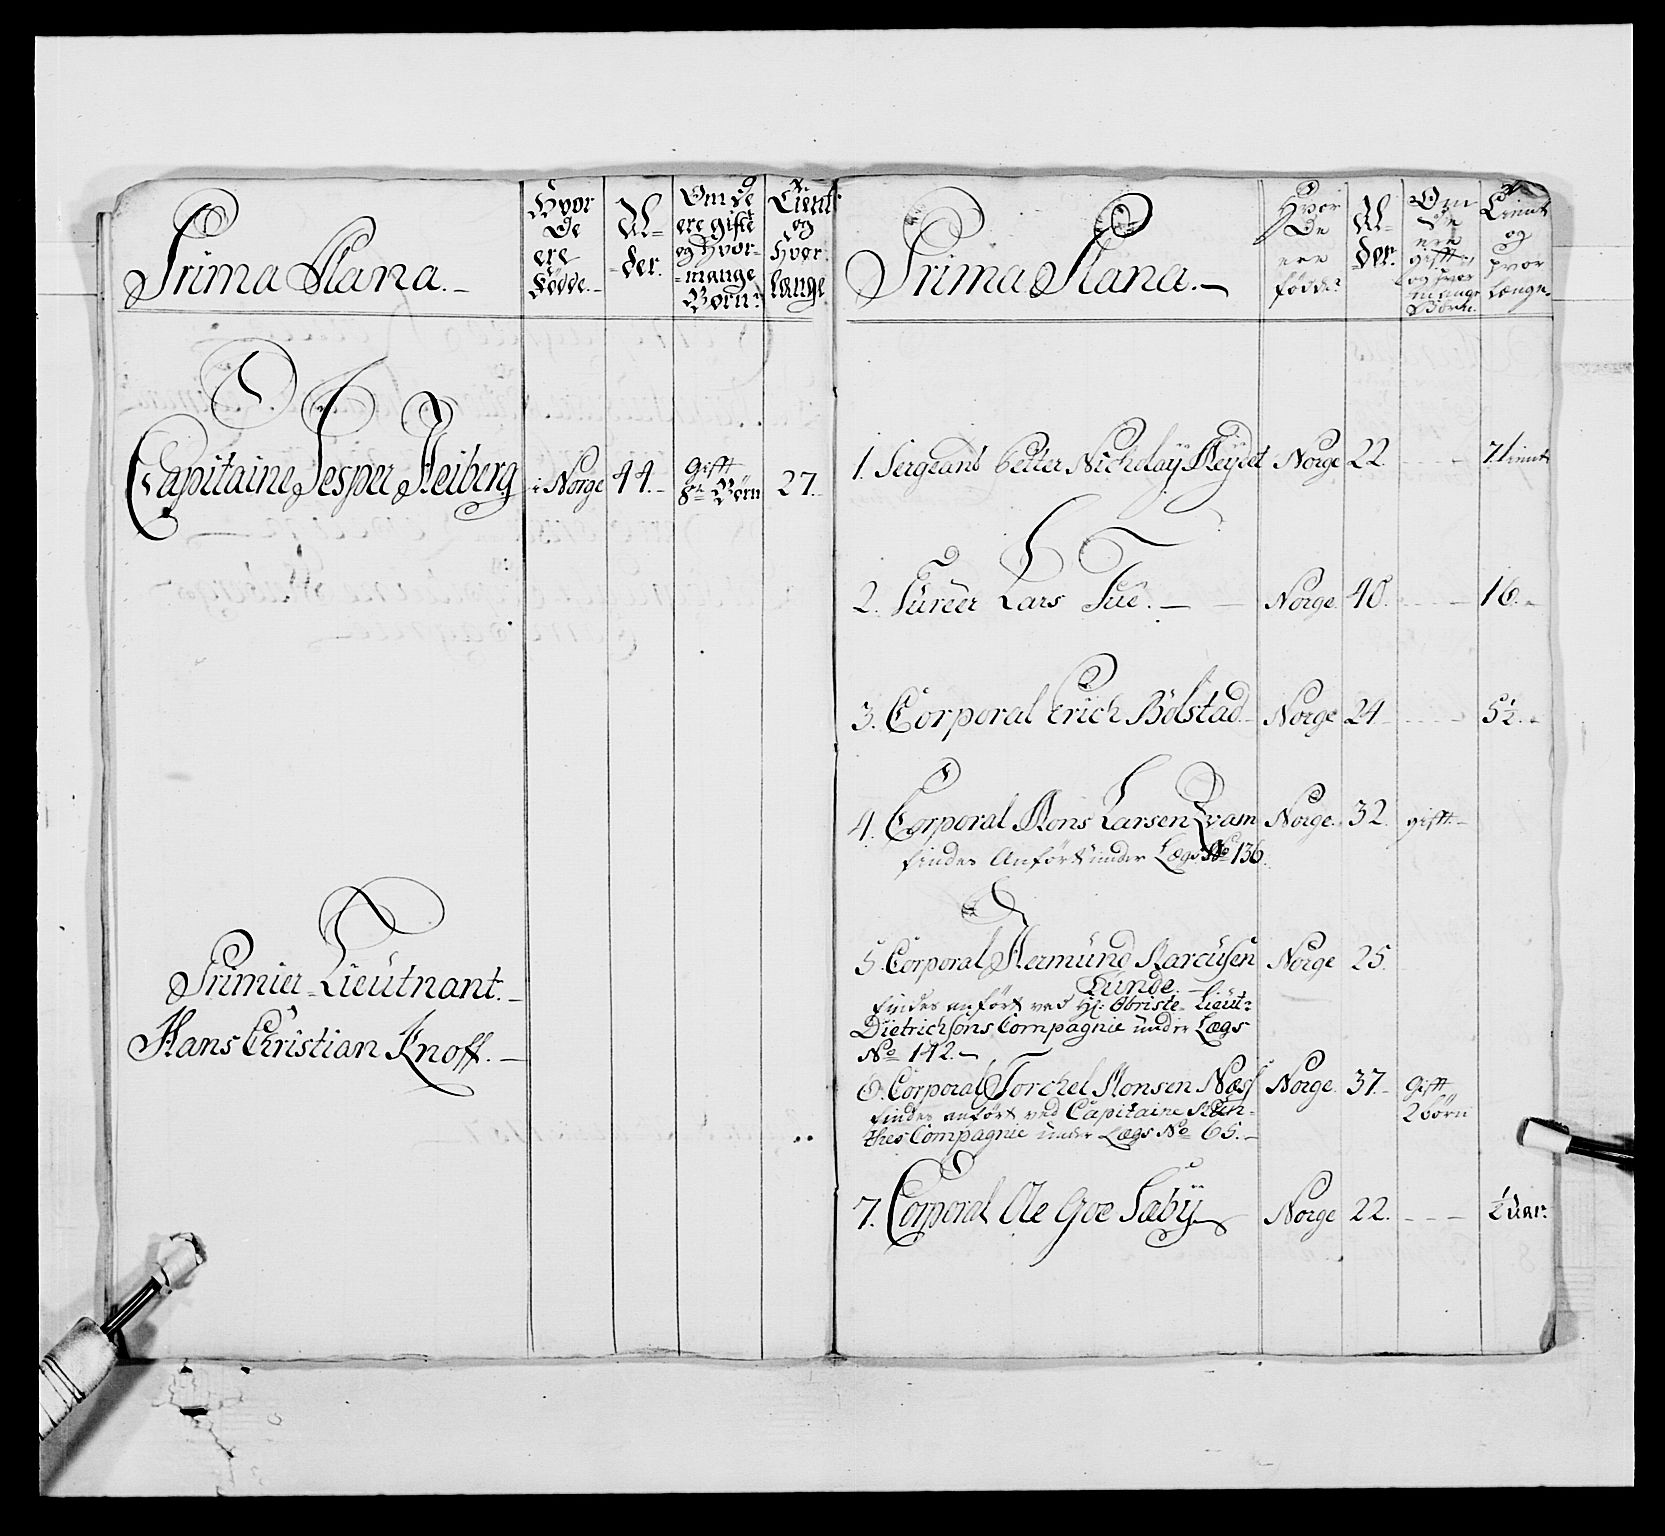 Prima Plana.
Hvor De ere Fødde.
Al-der.
Om de ere gifte og Hvor-mange Børn:
Tient og Hvor: længe
Capitaine Jesper Heiberg i Norge 44. gifft 8te Børn 27.
Primier-Lieutnant.
Hans Christian Knoff.
Prima Plana.
Hvor De ere fødde
Al-der.
Om de ere giffte, og hvor mange Børn.
Tient og hvor længe.
1. Sergeant Petter Nicholaÿ Norge 22 - - - 7. tient
2. Fúreer Lars Túe. Norge. 40. - - - 16.
3. Corporal Erich Bölstad Norge 24 - - - 5½.
4. Corporal Mons Larsen Qvam Norge. 32. gifft.
findes Anført under Lægs No 136.
5. Corporal Hermúnd Marcúsen Norge 25.
Túnde.
findes anført ved Hr: Obriste-Lieut:
Dietrichsons Compagnie under Lægs
No 142.
6. Corporal Torchel Monsen Næss Norge. 37. gifft
2 börn
findes anført ved Capitaine Mún-
thes Compagnie under Lægs No 65.
7. Corporal Ole Goe Sæbÿ Norge 22. - - - ½ aar.